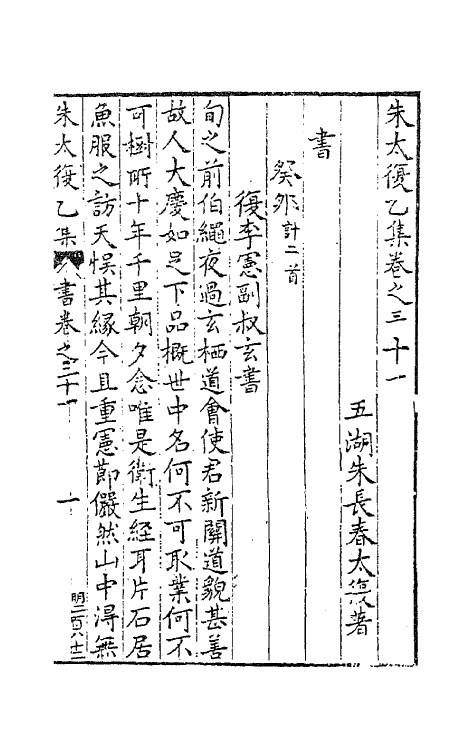 朱太復乙集卷之三十一
五湖朱長春太復著
書
癸卯計二首
復李憲副叔玄書
旬之前伯繩夜過玄栖道會使君新關道貌甚善
故人大慶如足下品概世中名何不可取業何不
可樹所十年千里朝夕念唯是衛生經耳片石居
魚服之訪天悮其緣今且重憲節儼然山中淂無
朱太復乙集 書卷之三十一 一